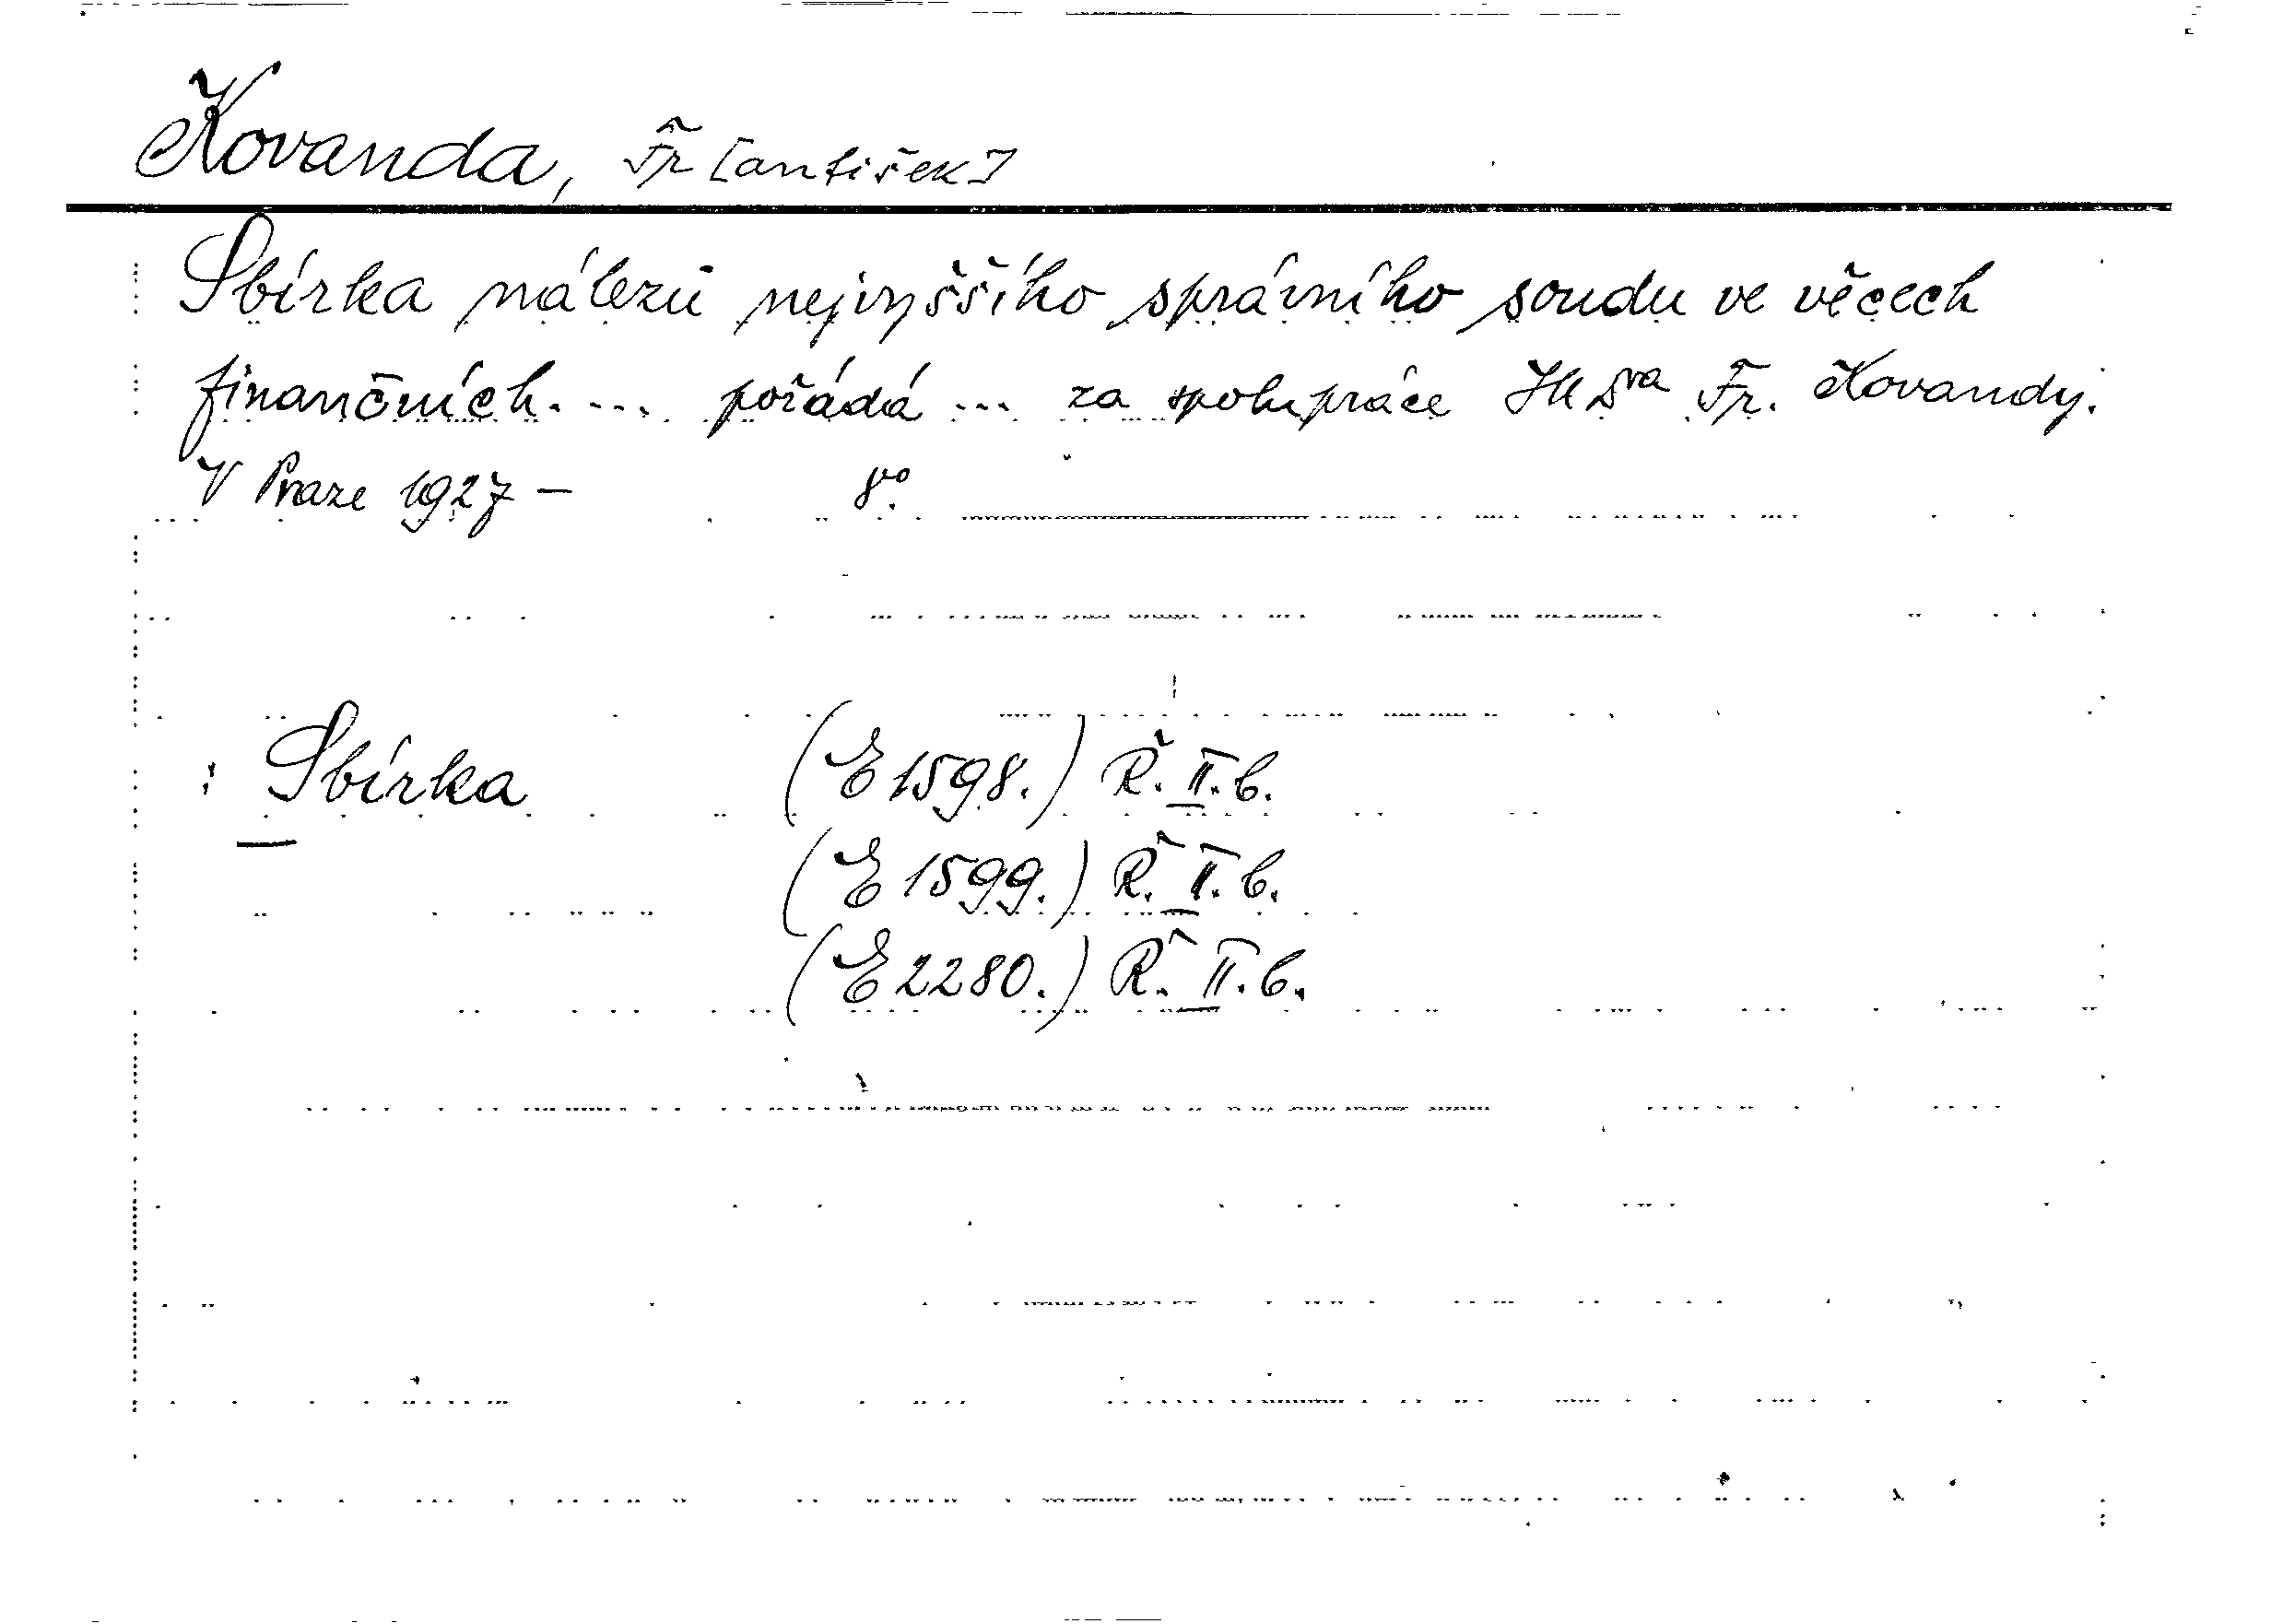 Kovanda, Fr[antišek]
Sbírka nálezů nejvyššího správního soudu ve věcech
finančních. ... pořádá ... za spolupráce JUDra Fr. Kovandy.
V Praze 1927 – 8°.
: Sbírka (E 1598.) Ř. II. b.
(E 1599.) Ř. II. b.
(E 2280.) Ř. II. b.